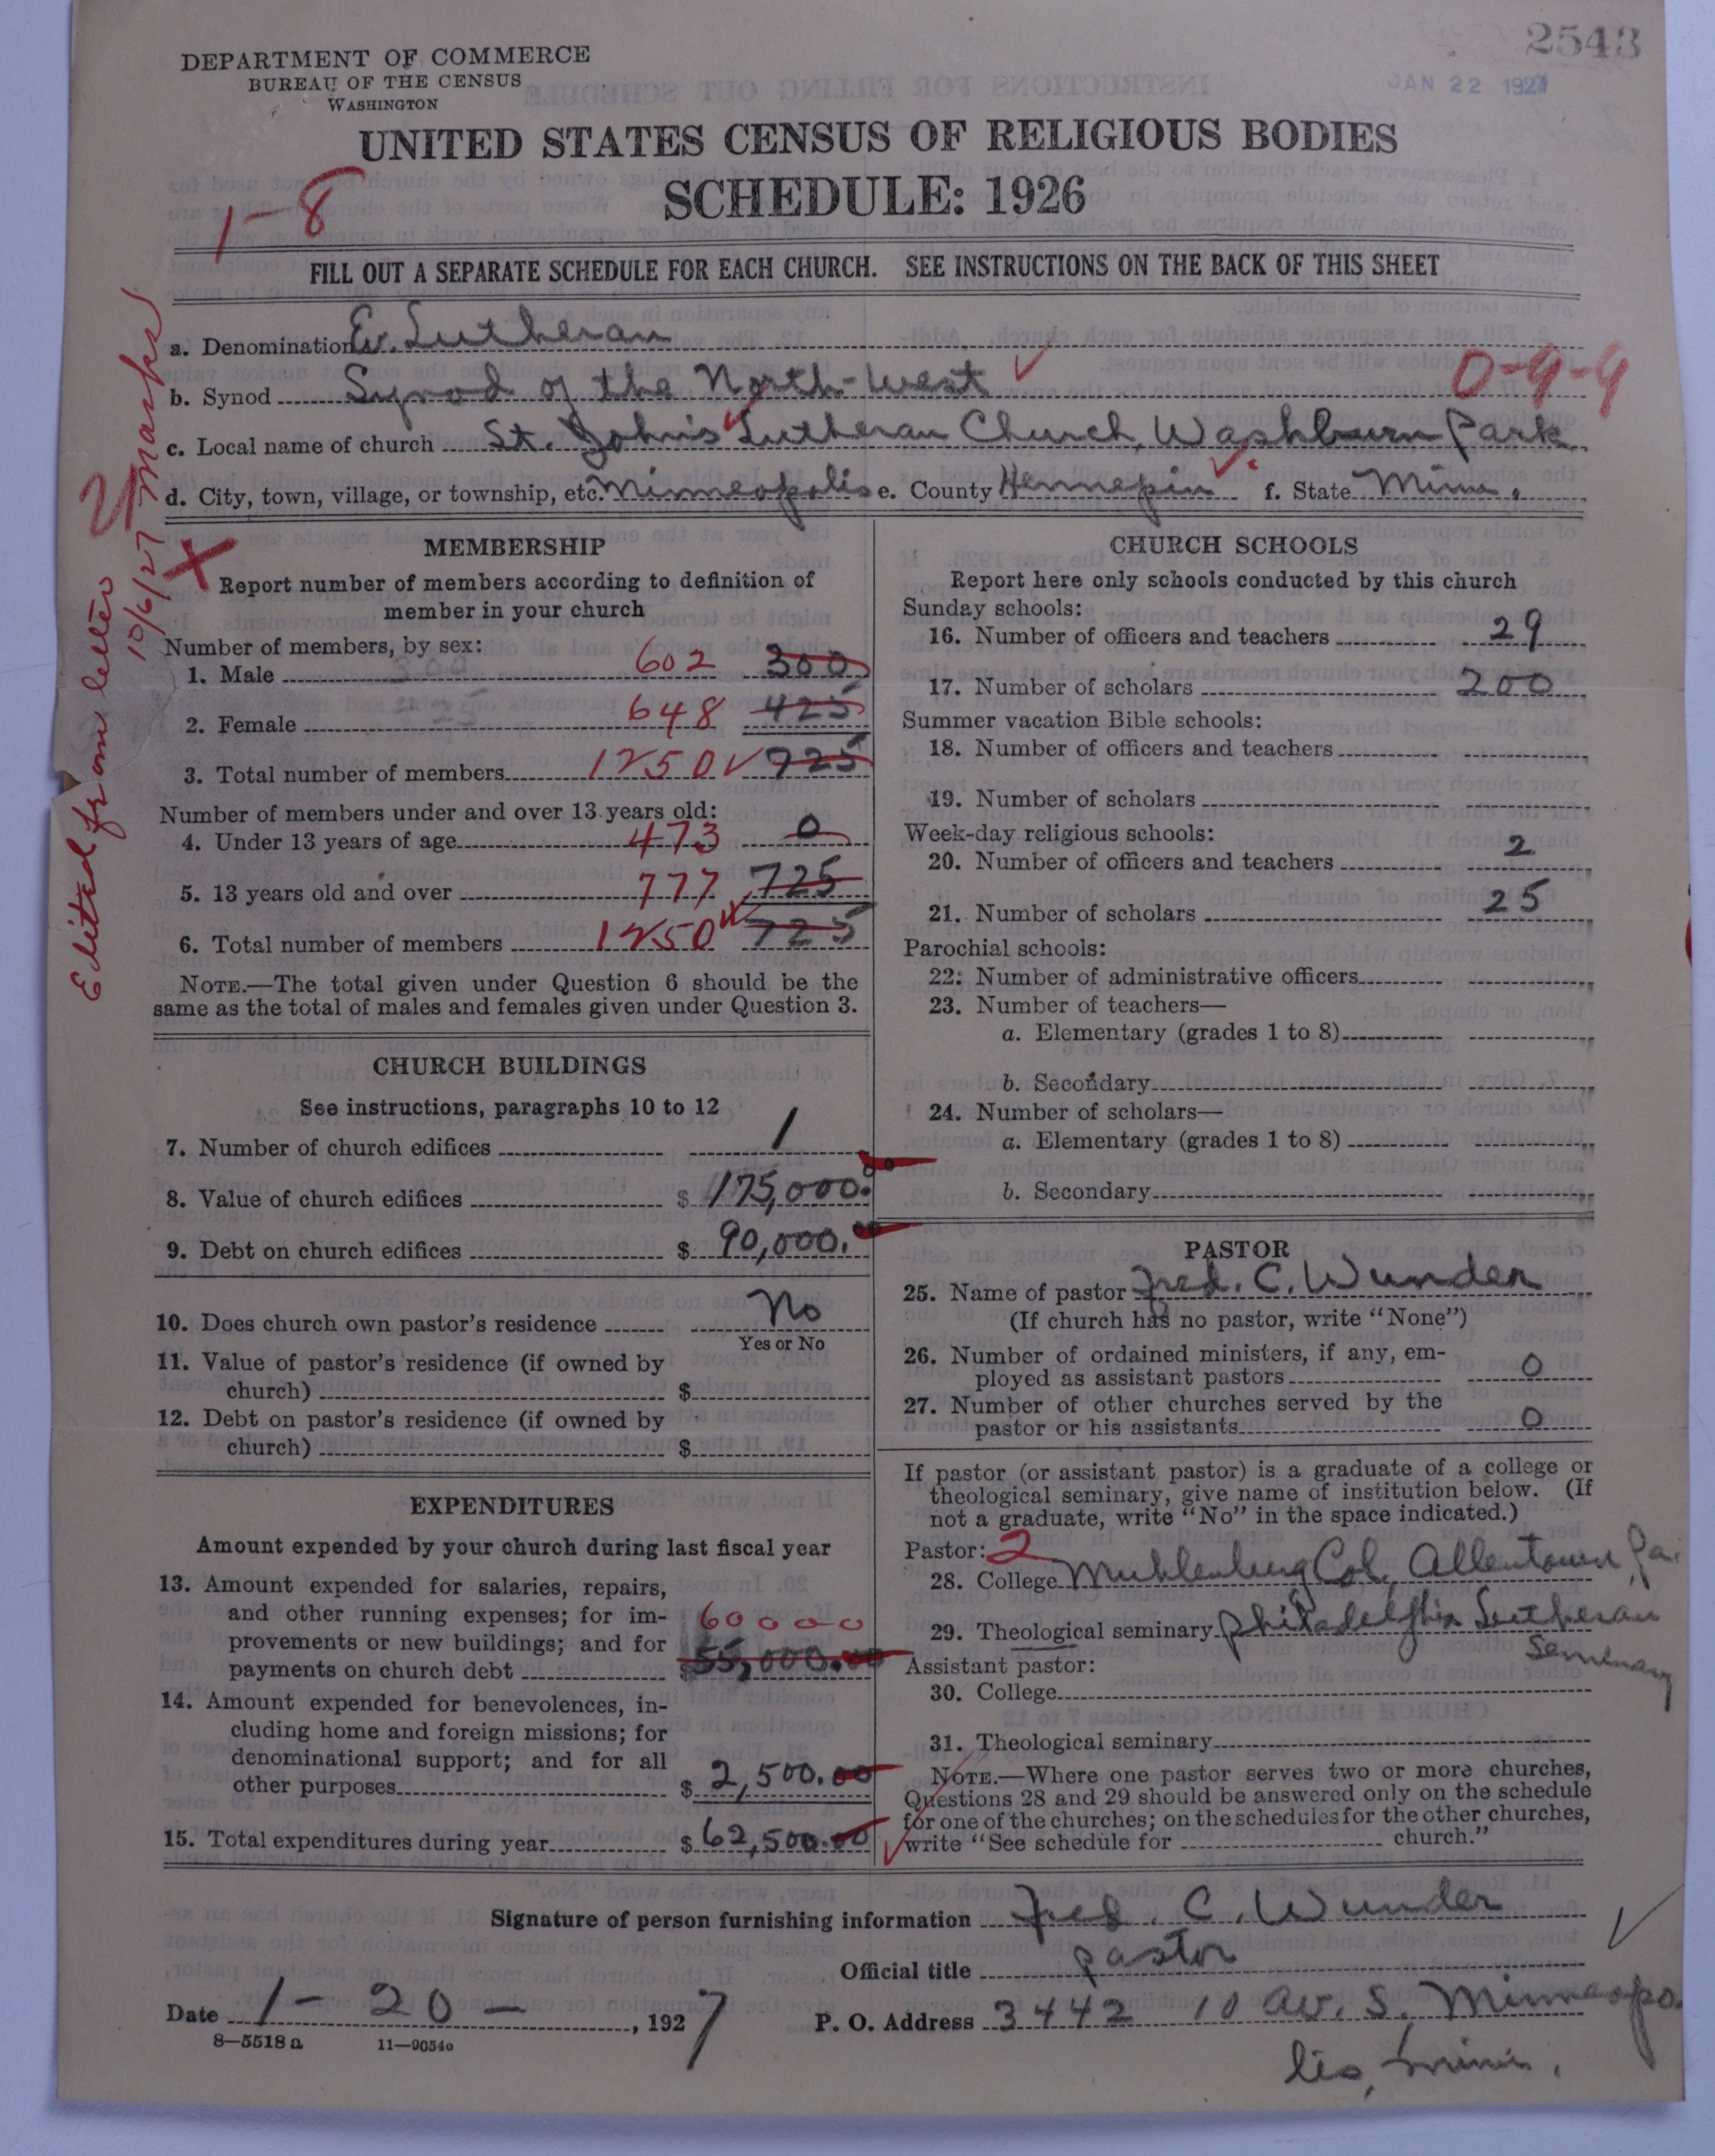 2543
JAN 22 1927
DEPARTMENT OF COMMERCE
BUREAU OF THE CENSUS
WASHINGTON
UNITED STATES CENSUS OF RELIGIOUS BODIES
SCHEDULE: 1926
1-8
FILL OUT A SEPARATE SCHEDULE FOR EACH CHURCH. SEE INSTRUCTIONS ON THE BACK OF THIS SHEET
a. Denomination Ev. Lutheran
b. Synod Synod of the North-West
0-9-9
c. Local name of church St. John's Lutheran Church, Washburn Park
d. City, town, village, or township, etc. Minneapolis e. County Hennepin f. State Minn.
Edited from letter
10/6/27
MEMBERSHIP
Report number of members according to definition of
member in your church
Number of members, by sex:
1. Male 602 300
2. Female 648 425
3. Total number of members 1250 725
Number of members under and over 13 years old:
4. Under 13 years of age 473 0
5. 13 years old and over 777 725
6. Total number of members 1250 725
NOTE.—The total given under Question 6 should be the
same as the total of males and females given under Question 3.
CHURCH BUILDINGS
See instructions, paragraphs 10 to 12
7. Number of church edifices 1
8. Value of church edifices $ 175,000.
9. Debt on church edifices $ 90,000.
10. Does church own pastor's residence No
Yes or No
11. Value of pastor's residence (if owned by
church) $
12. Debt on pastor's residence (if owned by
church) $
EXPENDITURES
Amount expended by your church during last fiscal year
13. Amount expended for salaries, repairs,
and other running expenses; for im-
60000
provements or new buildings; and for
payments on church debt $ 55,000.00
14. Amount expended for benevolences, in-
cluding home and foreign missions; for
denominational support; and for all
other purposes $ 2,500.00
15. Total expenditures during year $ 62,500.00
CHURCH SCHOOLS
Report here only schools conducted by this church
Sunday schools:
16. Number of officers and teachers 29
17. Number of scholars 200
Summer vacation Bible schools:
18. Number of officers and teachers
19. Number of scholars
Week-day religious schools:
20. Number of officers and teachers 2
21. Number of scholars 25
Parochial schools:
22. Number of administrative officers
23. Number of teachers—
a. Elementary (grades 1 to 8)
b. Secondary
24. Number of scholars—
a. Elementary (grades 1 to 8)
b. Secondary
PASTOR
25. Name of pastor Fred. C. Wunder
(If church has no pastor, write "None")
26. Number of ordained ministers, if any, em-
ployed as assistant pastors 0
27. Number of other churches served by the
pastor or his assistants 0
If pastor (or assistant pastor) is a graduate of a college or
theological seminary, give name of institution below. (If
not a graduate, write "No" in the space indicated.)
Pastor: 2
28. College Muhlenberg Col, Allentown, Pa.
29. Theological seminary Philadelphia Lutheran
Seminary
Assistant pastor:
30. College
31. Theological seminary
NOTE.—Where one pastor serves two or more churches,
Questions 28 and 29 should be answered only on the schedule
for one of the churches; on the schedules for the other churches,
write "See schedule for church."
Signature of person furnishing information Fred. C. Wunder
Official title pastor
Date 1-20-, 1927 P. O. Address 3442 10 Av. S. Minneapo
lis, Minn.
8—5518 a 11—9054o